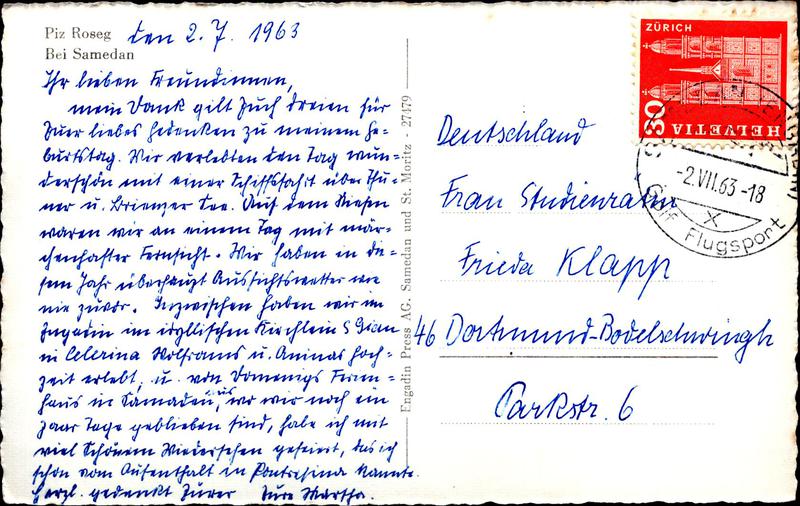 Piz Roseg
Bei Samedan
den 2. 7. 1963
Ihr lieben Freundinnen,
mein Dank gilt Euch dreien für
Euer liebes Gedenken zu meinem Ge=
burtstag. Wir verlebten den Tag wun=
derschön mit einer Schiffsfahrt über Thu=
ner u. Brienzer See. Auf dem Niesen
waren wir an einem Tag mit mär=
chenhafter Fernsicht. Wir haben in die=
sem Jahr überhaupt Aussichtswetter wie
nie zuvor. Inzwischen haben wir im
Engadin im idyllischen Kirchlein S Gian
in Celerina Wolframs u. Aninas Hoch=
zeit erlebt, u. von Domenigs Ferien=
haus in Samaden aus, wo wir noch ein
paar Tage geblieben sind, habe ich mit
viel Schönem Wiedersehen gefeiert, das ich
schon vom Aufenthalt in Pontresina kannte.
Herzl. gedenkt Eurer Eure Martha.
Engadin Press AG. Samedan und St. Moritz - 27479
ZÜRICH
30
HELVETIA
-2.VII.63-18
X
Golf Flugsport
Deutschland
Frau Studienrätin
Frieda Klapp
46 Dortmund-Bodelschwingh
Parkstr. 6